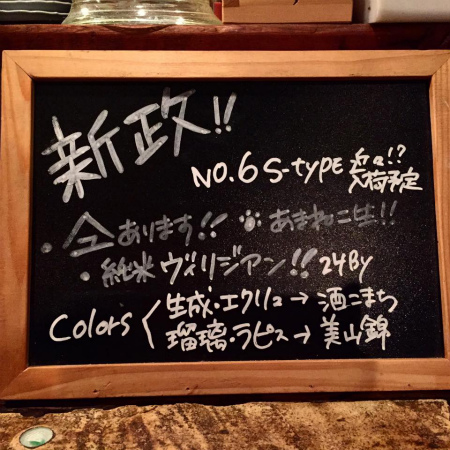 新政!!
NO.6 S-TYPE 近々!? 入荷予定
・今あります!! あまねこ生!!
・純米 ヴィリジアン!! 24By
Colors 〈 生成・エクリュ → 酒こまち
瑠璃・ラピス → 美山錦